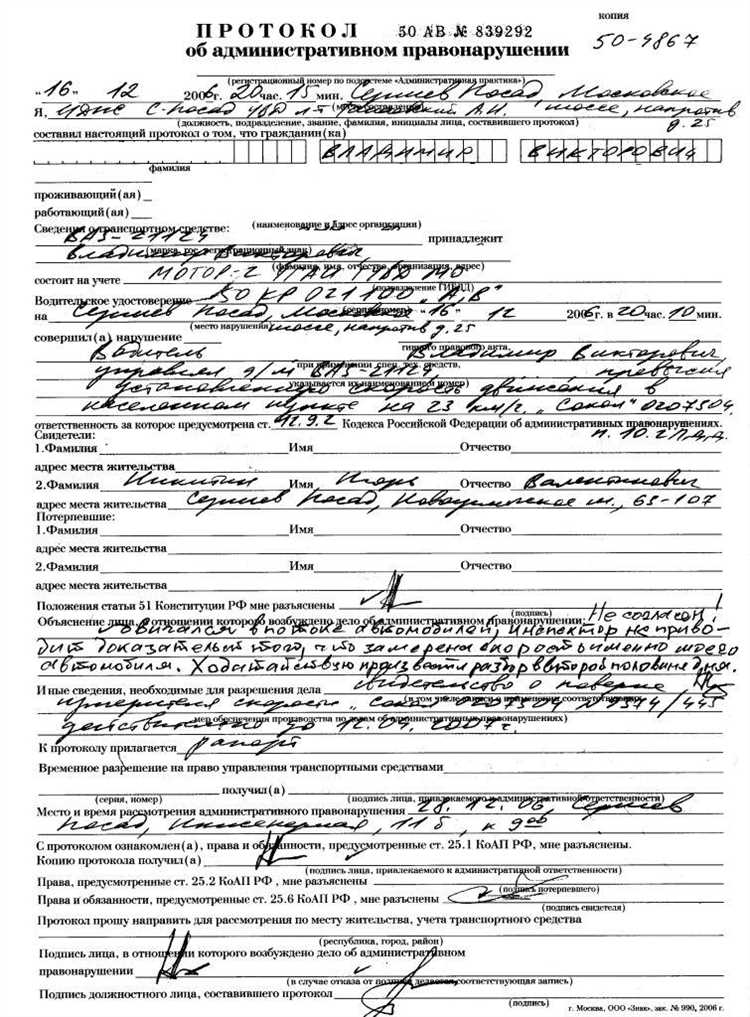 копия
ПРОТОКОЛ 50 АВ № 839292
об административном правонарушении 50-4867
(регистрационный номер по подсистеме «Административная практика»)
"16" 12 2006г. 20 час. 15 мин. Сергиев Посад, Московское
(место составления)
Я, С-Посад УВД л-т А.Н. шоссе, напротив
(должность, подразделение, звание, фамилия, инициалы лица, составившего протокол) д. 25
составил настоящий протокол о том, что гражданин(ка)
ВЛАДИМИР ВИКТОРОВИЧ
фамилия
проживающий(ая)
работающий(ая)
(наименование и адрес организации)
Сведения о транспортном средстве:
ВАЗ-21124 принадлежит
(марка, гос. регистрационный знак)
Владимир Викторович,
(фамилия, имя, отчество, организация, адрес)
состоит на учете МОТОР-2 ГАИ УВД МО
(подразделение ГИБДД)
Водительское удостоверение 50 КР 021100 "А,В"
(серия, номер)
на Сергиев Посад, Московское "16" 12 2006г. в 20 час. 10 мин.
(место нарушения) шоссе, напротив д. 25
совершил(а) нарушение
Водитель Владимир Викторович,
при применении спец. тех. средств,
управлял а/м ВАЗ-21124, превысил
указывается их наименование и номер)
установленную скорость движения в
населенном пункте на 23 км/г. "Сокол" 0207504.
ответственность за которое предусмотрена ст. 12.9.2 Кодекса Российской Федерации об административных правонарушениях.
п. 10.2 П.Д.Д.
Свидетели:
1.Фамилия Имя Отчество
адрес места жительства
2.Фамилия Никитин Имя Игорь Отчество Валентинович
адрес места жительства Сергиев Посад, Новоугличское ш., 63-107
Потерпевшие:
1.Фамилия Имя Отчество
адрес места жительства
2.Фамилия Имя Отчество
адрес места жительства
Положения статьи 51 Конституции РФ мне разъяснены
(подпись)
Объяснение лица, в отношении которого возбуждено дело об административном правонарушении: Не согласен!
Двигался в потоке автомобилей, инспектор не приво-
дит доказательств того, что замерена скорость именно моего
автомобиля. Ходатайствую произвести разбор во второй половине дня.
Иные сведения, необходимые для разрешения дела свидетельство о поверке
(в том числе данные о применении соответствующих
измерителя скорости "Сокол" 0207504 /445
мер обеспечения производства по делам об административных правонарушениях)
действительно до 12.04.2007г.
К протоколу прилагается рапорт
Временное разрешение на право управления транспортными средствами
получил(а)
(серия, номер) (подпись лица, привлекаемого к административной ответственности)
Место и время рассмотрения административного правонарушения 28.12.06 Сергиев
Посад, Инженерная, 11б, к 9 00
С протоколом ознакомлен(а), права и обязанности, предусмотренные ст. 25.1 КоАП РФ, мне разъяснены.
Копию протокола получил(а)
(подпись лица, привлекаемого к административной ответственности)
Права, предусмотренные ст. 25.2 КоАП РФ , мне разъяснены
(подпись потерпевшего)
Права и обязанности, предусмотренные ст. 25.6 КоАП РФ , мне разъснены
(подпись свидетеля)
Протокол прошу направить для рассмотрения по месту жительства, учета транспортного средства
(республика, город, район)
Подпись лица, в отношении которого возбуждено дело об административном
правонарушении
(в случае отказа от подписи делается соответствующая запись)
Подпись должностного лица, составившего протокол
(подпись)
г. Москва, ООО «Знак», зак. № 990, 2006 г.